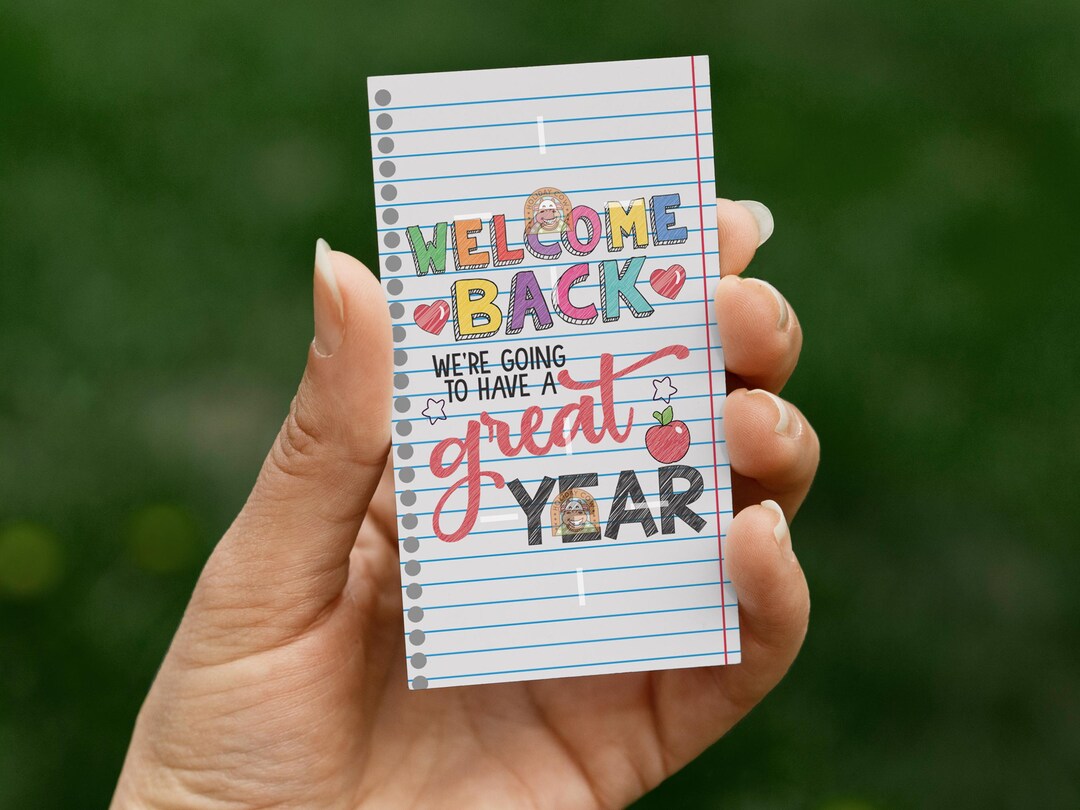 WELCOME
BACK
WE'RE GOING
TO HAVE A
great
YEAR